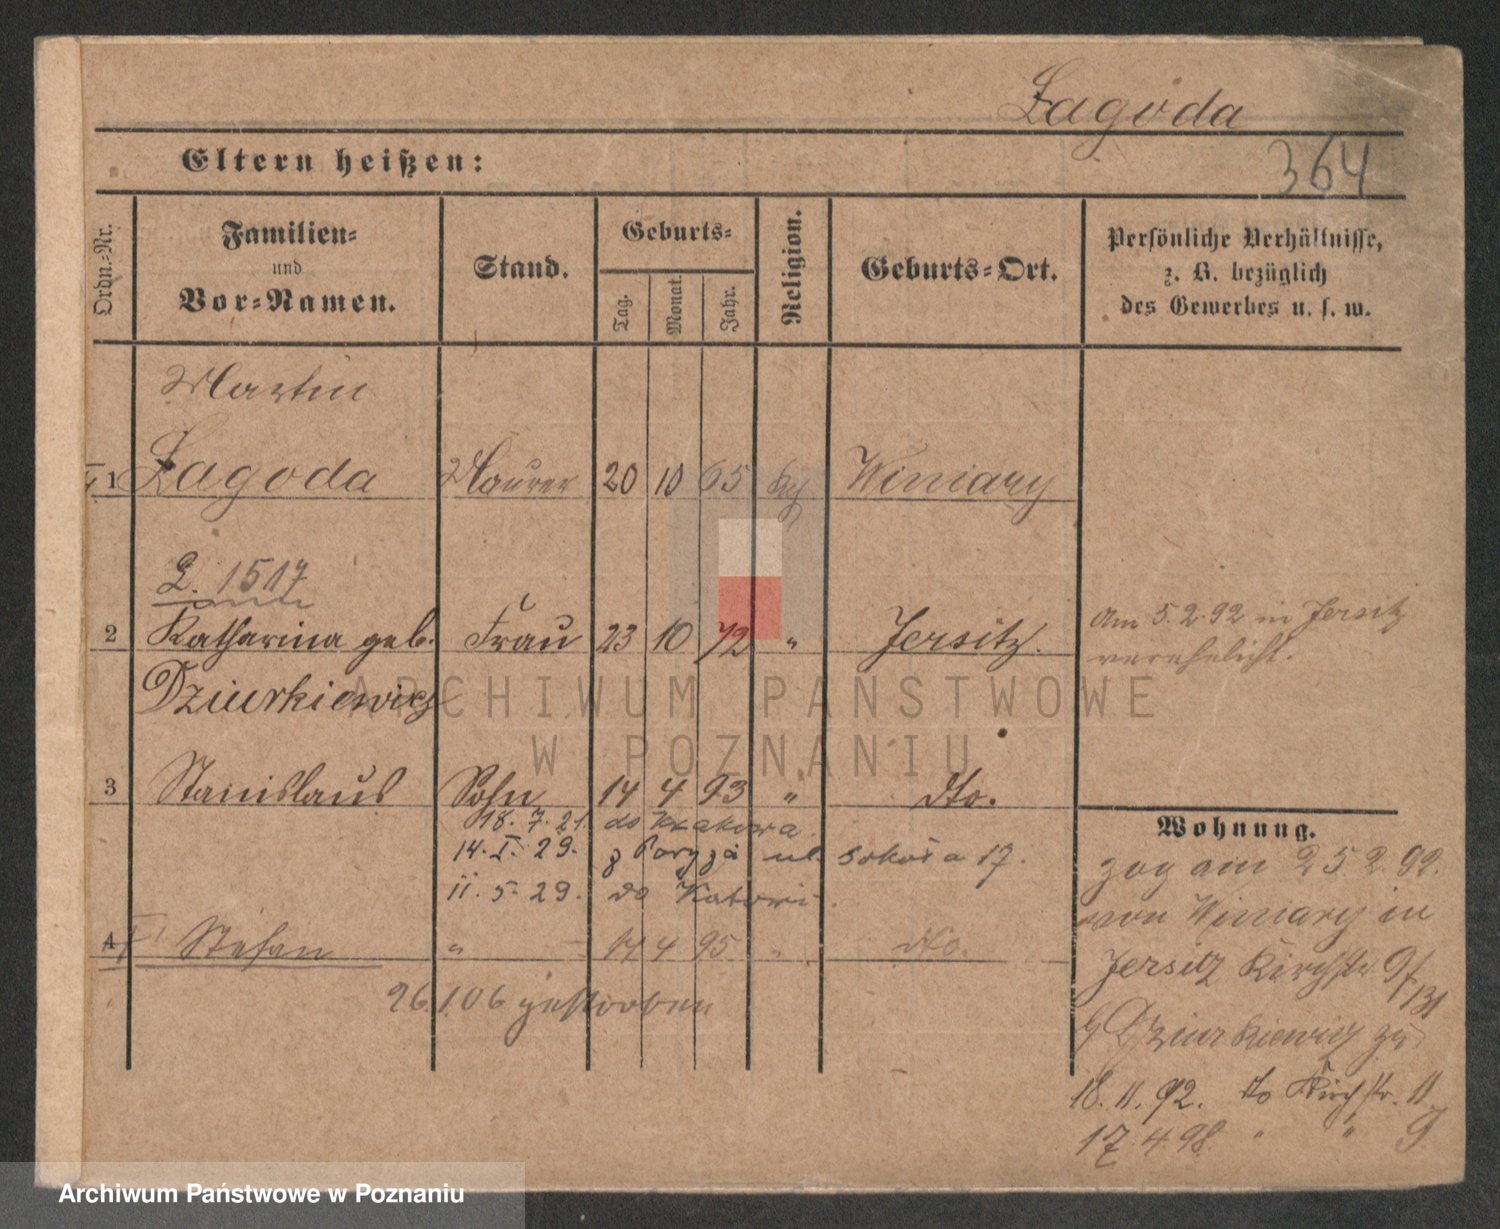 Łagoda
Eltern heißen:
364
Ordn.-Nr.
Familien-
und
Vor-Namen.
Stand.
Geburts-
Tag.
Monat.
Jahr.
Religion.
Geburts-Ort.
Persönliche Verhältnisse,
z. B. bezüglich
des Gewerbes u. s. w.
Martin
1 Łagoda Maurer 20 10 65 kth Winiary
1517
2 Katharina geb. Frau 23 10 72 " Jersitz. Am 5.2.92 in Jersitz
verehelicht.
Dziurkiewicz
ARCHIWUM PAŃSTWOWE
W POZNANIU
3 Stanislaus Sohn 14 4 93 " dto.
18. 7. 21. do Krakowa
14. I. 29. z Paryża ul. 17.
11. 5. 29. do Katowic.
4 Stefan " 14 4 95 " dto.
26.1.06 gestorben
Wohnung.
zog am 25.2.92.
von Winiary in
Jersitz Kirchstr 9/
131
b/ Dziurkiewicz zu
18. 11. 92. dto Kirchstr. 11
17.4.98. " " 9
Archiwum Państwowe w Poznaniu